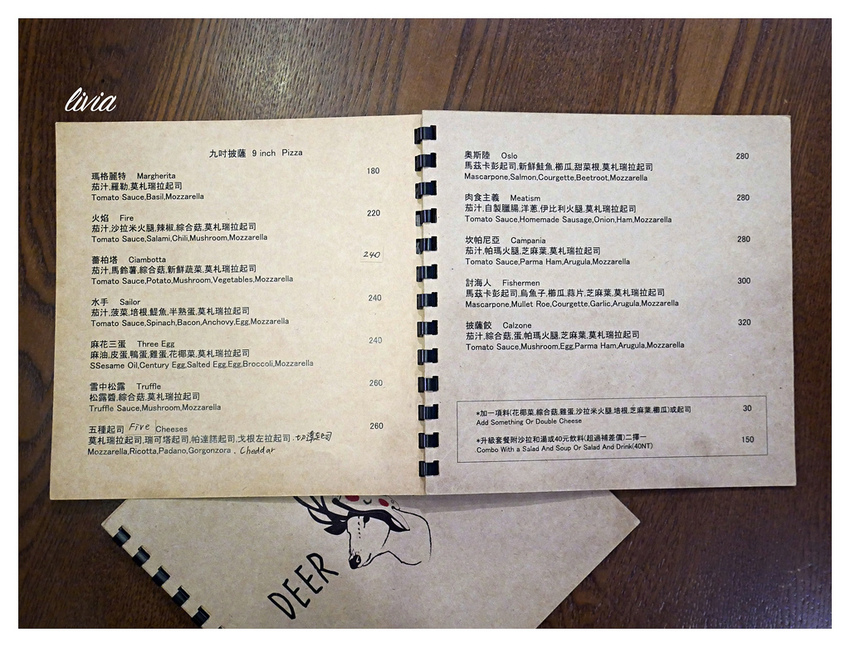 livia
九吋披薩 9 inch Pizza
瑪格麗特 Margherita 180
茄汁,羅勒,莫札瑞拉起司
Tomato Sauce,Basil,Mozzarella
火焰 Fire 220
茄汁,沙拉米火腿,辣椒,綜合菇,莫札瑞拉起司
Tomato Sauce,Salami,Chili,Mushroom,Mozzarella
薔柏塔 Ciambotta 240
茄汁,馬鈴薯,綜合菇,新鮮蔬菜,莫札瑞拉起司
Tomato Sauce,Potato,Mushroom,Vegetables,Mozzarella
水手 Sailor 240
茄汁,菠菜,培根,鯷魚,半熟蛋,莫札瑞拉起司
Tomato Sauce,Spinach,Bacon,Anchovy,Egg,Mozzarella
麻花三蛋 Three Egg 240
麻油,皮蛋,鴨蛋,雞蛋,花椰菜,莫札瑞拉起司
SSesame Oil,Century Egg,Salted Egg,Egg,Broccoli,Mozzarella
雪中松露 Truffle 260
松露醬,綜合菇,莫札瑞拉起司
Truffle Sauce,Mushroom,Mozzarella
五種起司 Five Cheeses 260
莫札瑞拉起司,瑞可塔起司,帕達諾起司,戈根左拉起司.切達起司
Mozzarella,Ricotta,Padano,Gorgonzora . Cheddar
奧斯陸 Oslo 280
馬茲卡彭起司,新鮮鮭魚,櫛瓜,甜菜根,莫札瑞拉起司
Mascarpone,Salmon,Courgette,Beetroot,Mozzarella
肉食主義 Meatism 280
茄汁,自製臘腸,洋蔥,伊比利火腿,莫札瑞拉起司
Tomato Sauce,Homemade Sausage,Onion,Ham,Mozzarella
坎帕尼亞 Campania 280
茄汁,帕瑪火腿,芝麻葉,莫札瑞拉起司
Tomato Sauce,Parma Ham,Arugula,Mozzarella
討海人 Fishermen 300
馬茲卡彭起司,烏魚子,櫛瓜,蒜片,芝麻葉,莫札瑞拉起司
Mascarpone,Mullet Roe,Courgette,Garlic,Arugula,Mozzarella
披薩餃 Calzone 320
茄汁,綜合菇,蛋,帕瑪火腿,芝麻葉,莫札瑞拉起司
Tomato Sauce,Mushroom,Egg,Parma Ham,Arugula,Mozzarella
*加一項料(花椰菜,綜合菇,雞蛋,沙拉米火腿,培根,芝麻葉,櫛瓜)或起司 30
Add Something Or Double Cheese
*升級套餐附沙拉和湯或40元飲料(超過補差價)二擇一 150
Combo With a Salad And Soup Or Salad And Drink(40NT)
DEER